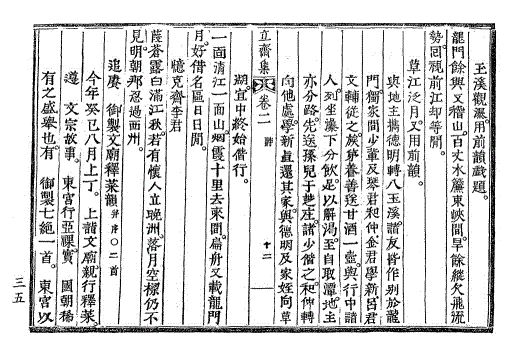 玉溪觀瀑用前韻戲題
龍門餘興又稽山百丈水簾東峽間旱餘縱欠飛流
勢回視前江却等閒
草江泛月又用前韻
與地主携德明轉入玉溪諸友皆作別於龍
門獨家間少輩及琴君和仲金君學新呂君
文輔從之族弟春善送甘酒一壺與行中諸
人列坐瀑下分飮是以解渴至自取潭地主
亦分路先送孫兒于楚庄諸少偕之和仲轉
向他處學新直還其家與德明及家姪向草
立齋集
卷二
詩
十二
湖宜中終始偕行
一面清江一面山烟霞十里去來間扁舟又載龍門
月好借名區日日閒
憶克齋李君
葭蒼露白滿江秋若有懷人立晚洲落月空樑仍不
見明朝那忍過西州
追賡 御製文廟釋菜韻 幷序○二首
今年癸巳八月上丁 上詣文廟親行釋菜
遵 文宗故事 東宮行亞祼實 國朝稀
有之盛擧也有 御製七絶一首 東宮以
三五